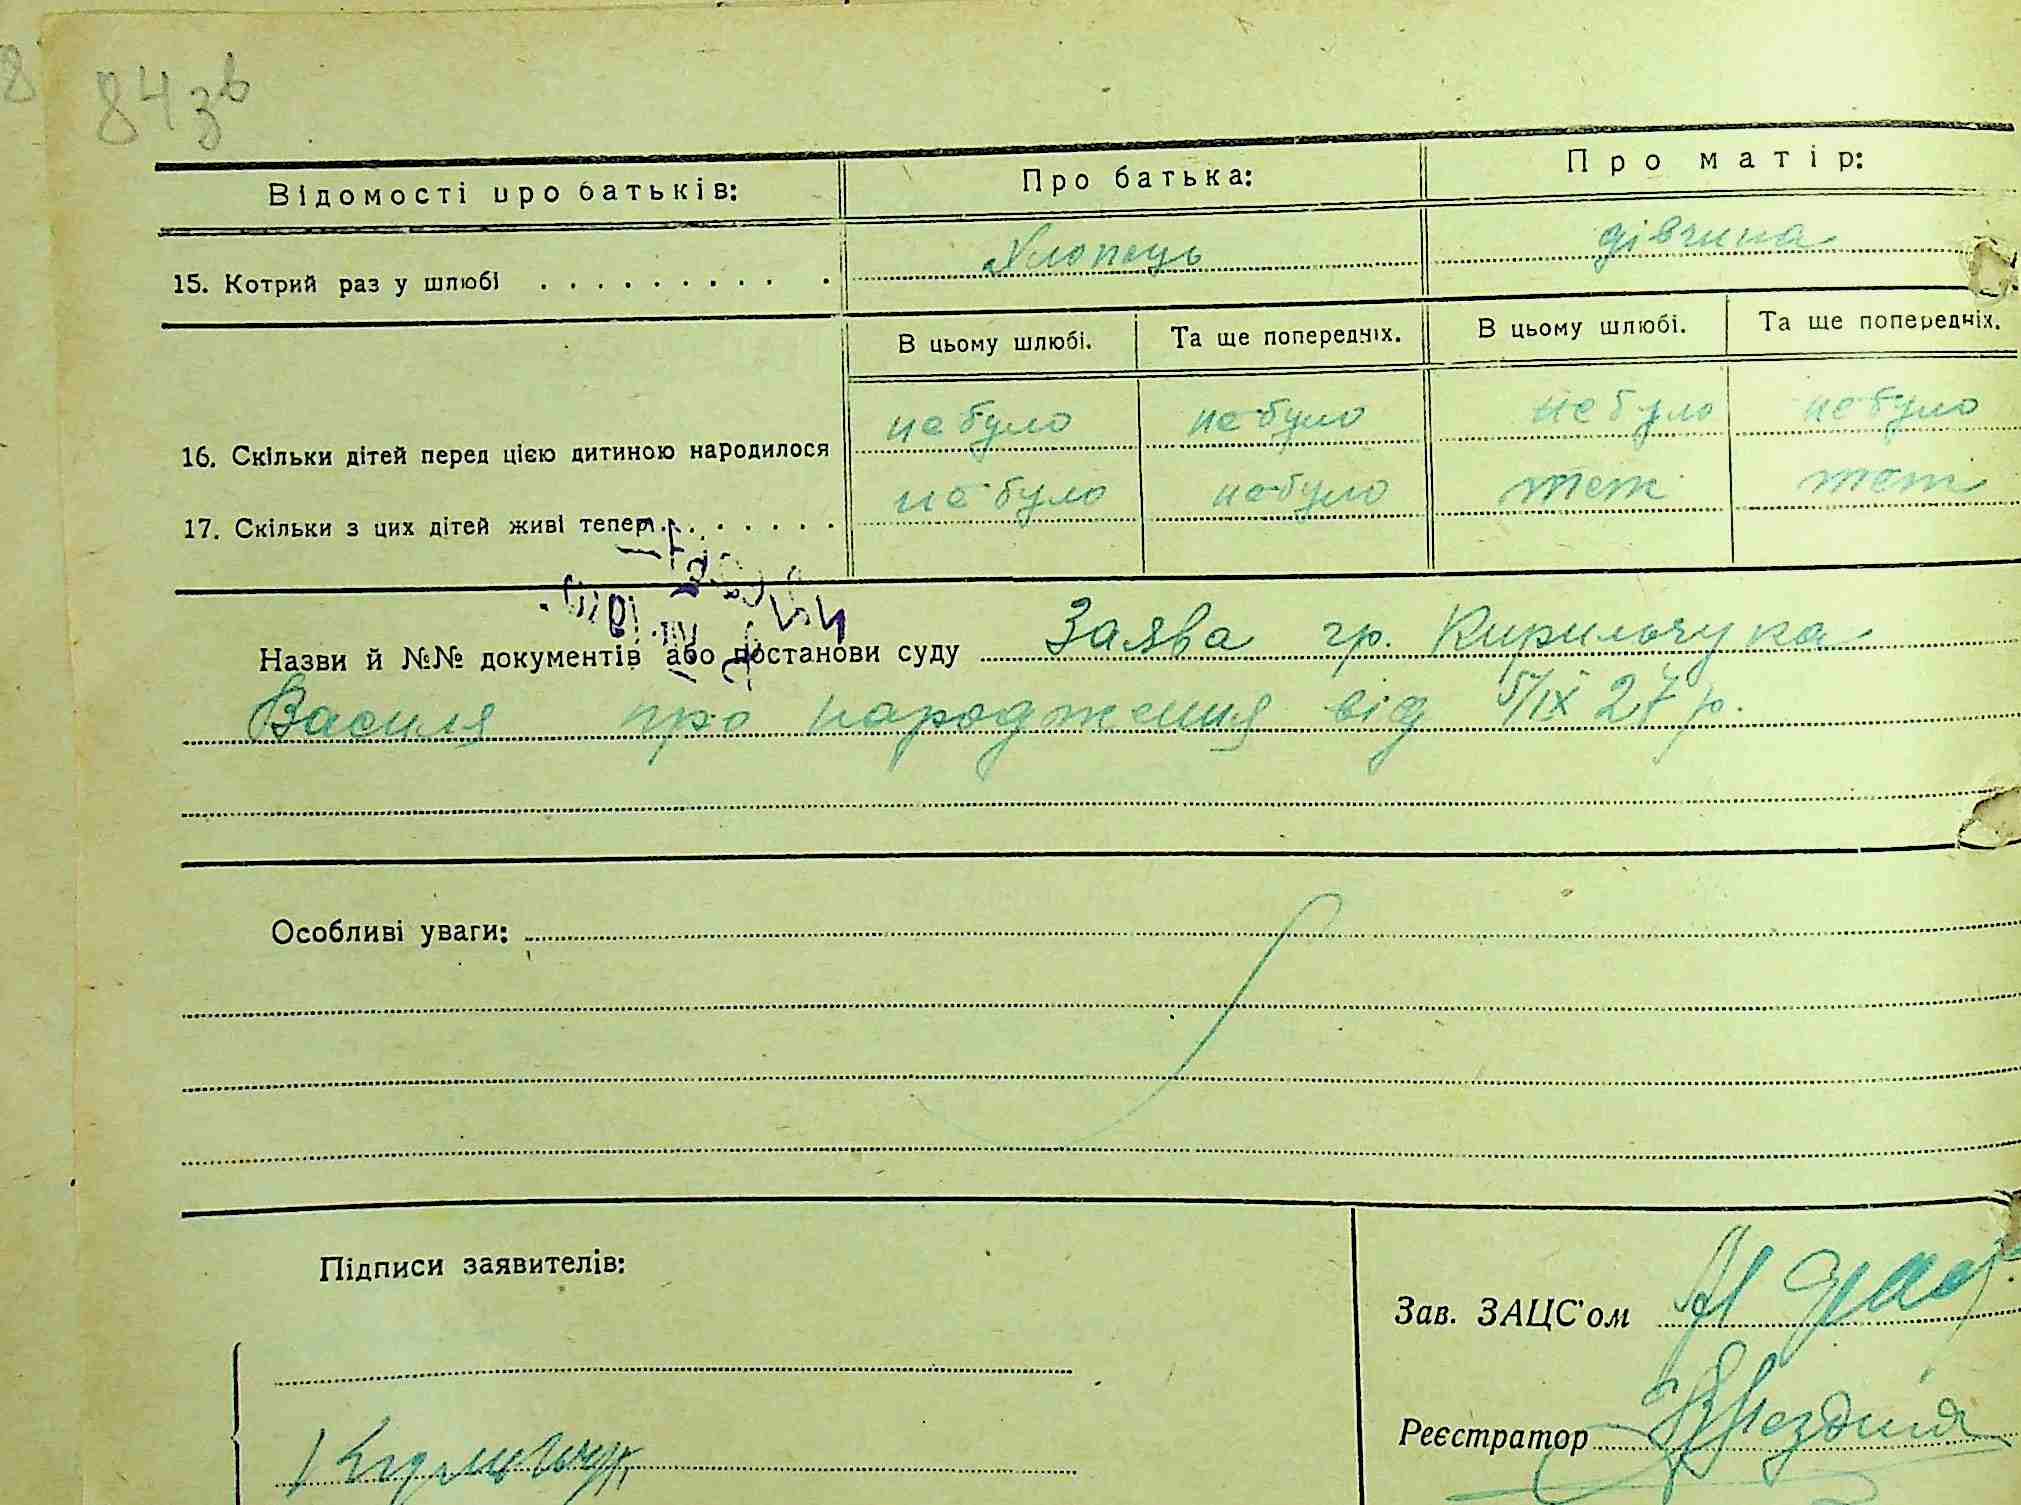 84 зв
Відомості про батьків: Про батька: Про матір:
15. Котрий раз у шлюбі . . . . . . . . . . Хлопець дівчина
В цьому шлюбі. Та ще попередніх. В цьому шлюбі. Та ще попередніх.
16. Скільки дітей перед цією дитиною народилося не було не було не було не було
17. Скільки з цих дітей живі тепер . . . . . . . не було не було теж теж
Назви й №№ документів або постанови суду Заява гр. Кирильчука
Василя про народження від 5/IX 27 р.
Особливі уваги:
Підписи заявителів:
Зав. ЗАЦС'ом
Реєстратор